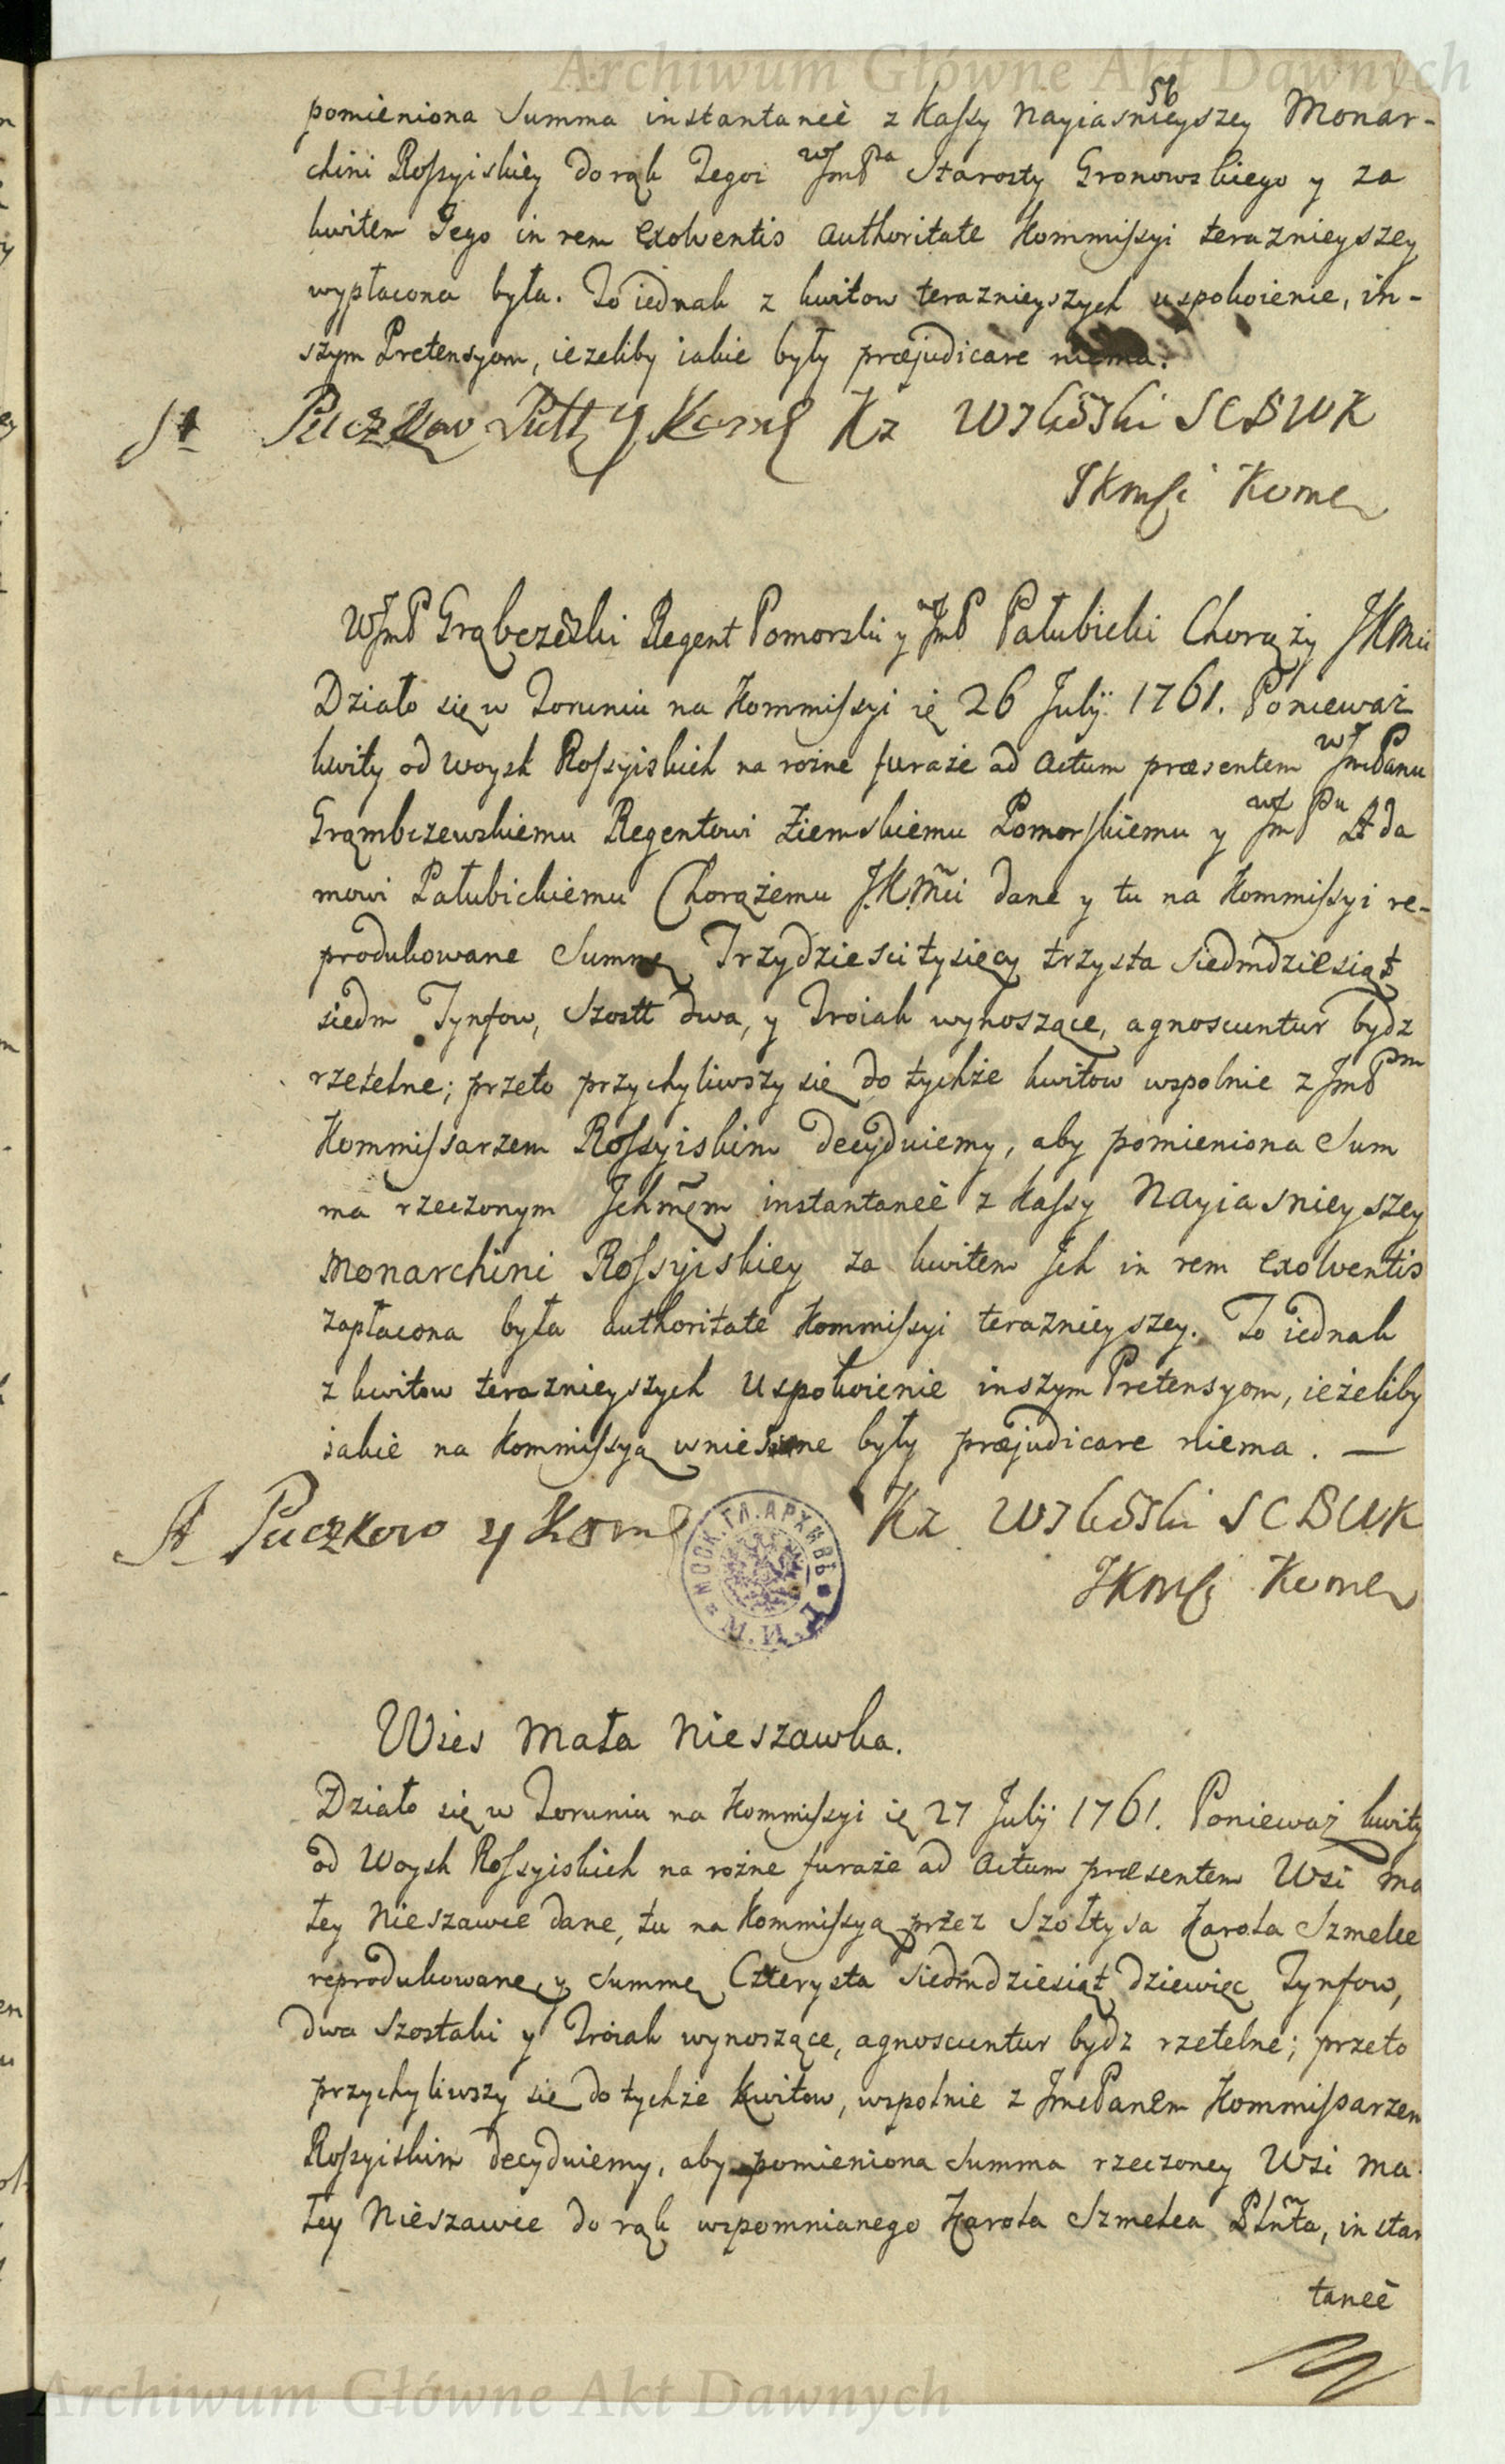 Archiwum Główne Akt Dawnych
56
pomieniona Summa instantaneè z Kassy Nayiasnieyszey Monar-
chini Rossyiskiey do rąk Tegoż WJmP̃a Starosty Gronowskiego y za
kwitem Jego in rem exolventis authoritate Kommissyi teraznieyszey
wypłacona była. To iednak z kwitow teraznieyszych uspokoienie, in-
szym Pretensyom, iezeliby iakie były præjudicare niema.
St Puczkow Putt y Kom Kz Wzl̃ski SCBWK
JKmsi Kome
WJmP Grąbczẽski Regent Pomorski y WJmP Pałubicki Chorąży JKMci
Działo się w Toruniu na Kommissyi ię 26 Julÿ 1761. Ponieważ
kwity od woysk Rossyiskich na rożne furaże ad Actum præsentem WJmcPanu
Grąmbczewskiemu Regentowi Ziemskiemu Pomorskiemu y WJmPu Ada
mowi Pałubickiemu Chorążemu J.K.Mci dane y tu na Kommissyi re-
produkowane Summę Trzydziesci tysięcy trzysta siedmdziesiąt
siedm Tynfow, Szostt dwa, y Troiak wynoszące, agnoscuntur bydz
rzetelne; przeto przychyliwszy się do tychże kwitow wspolnie z JmPm
Kommissarzem Rossyiskim decyduiemy, aby pomieniona Sum
ma rzeczonym Jchmęm instantaneè z Kassy Nayiasnieyszey
Monarchini Rossyiskiey za kwitem Jch in rem exolventis
zapłacona była authoritate Kommissyi teraznieyszey. To iednak
z kwitow teraznieyszych uspokoienie inszym Pretensyom, ieżeliby
iakie na Kommissyą wniesione były præjudicare niema. —
St Puczkow y Kom Kz Wzl̃ski SCBWK
JKmsi Kome
МОСК. ГЛ. АРХИВЪ М. И. Д.
Wies Mała Nieszawka.
Działo się w Toruniu na Kommissyi ię 27 Julÿ 1761. Ponieważ kwity
od Woysk Rossyiskich na rożne furaże ad Actum præsentem Wsi Ma
łey Nieszawce dane, tu na Kommissyą przez Szołtysa Karola Szmelce
reprodukowane, y Summę Czterysta Siedmdziesiąt dziewięc Tynfow,
dwa Szostaki y Troiak wynoszące, agnoscuntur bydz rzetelne; przeto
przychyliwszy się do tychże Kwitow, wspolnie z JmcPanem Kommissarzem
Rossyiskim decyduiemy, aby pomieniona Summa rzeczoney Wsi Ma
łey Nieszawce do rąk wspomnianego Karola Szmelca Plñta, instan
taneè
Archiwum Główne Akt Dawnych